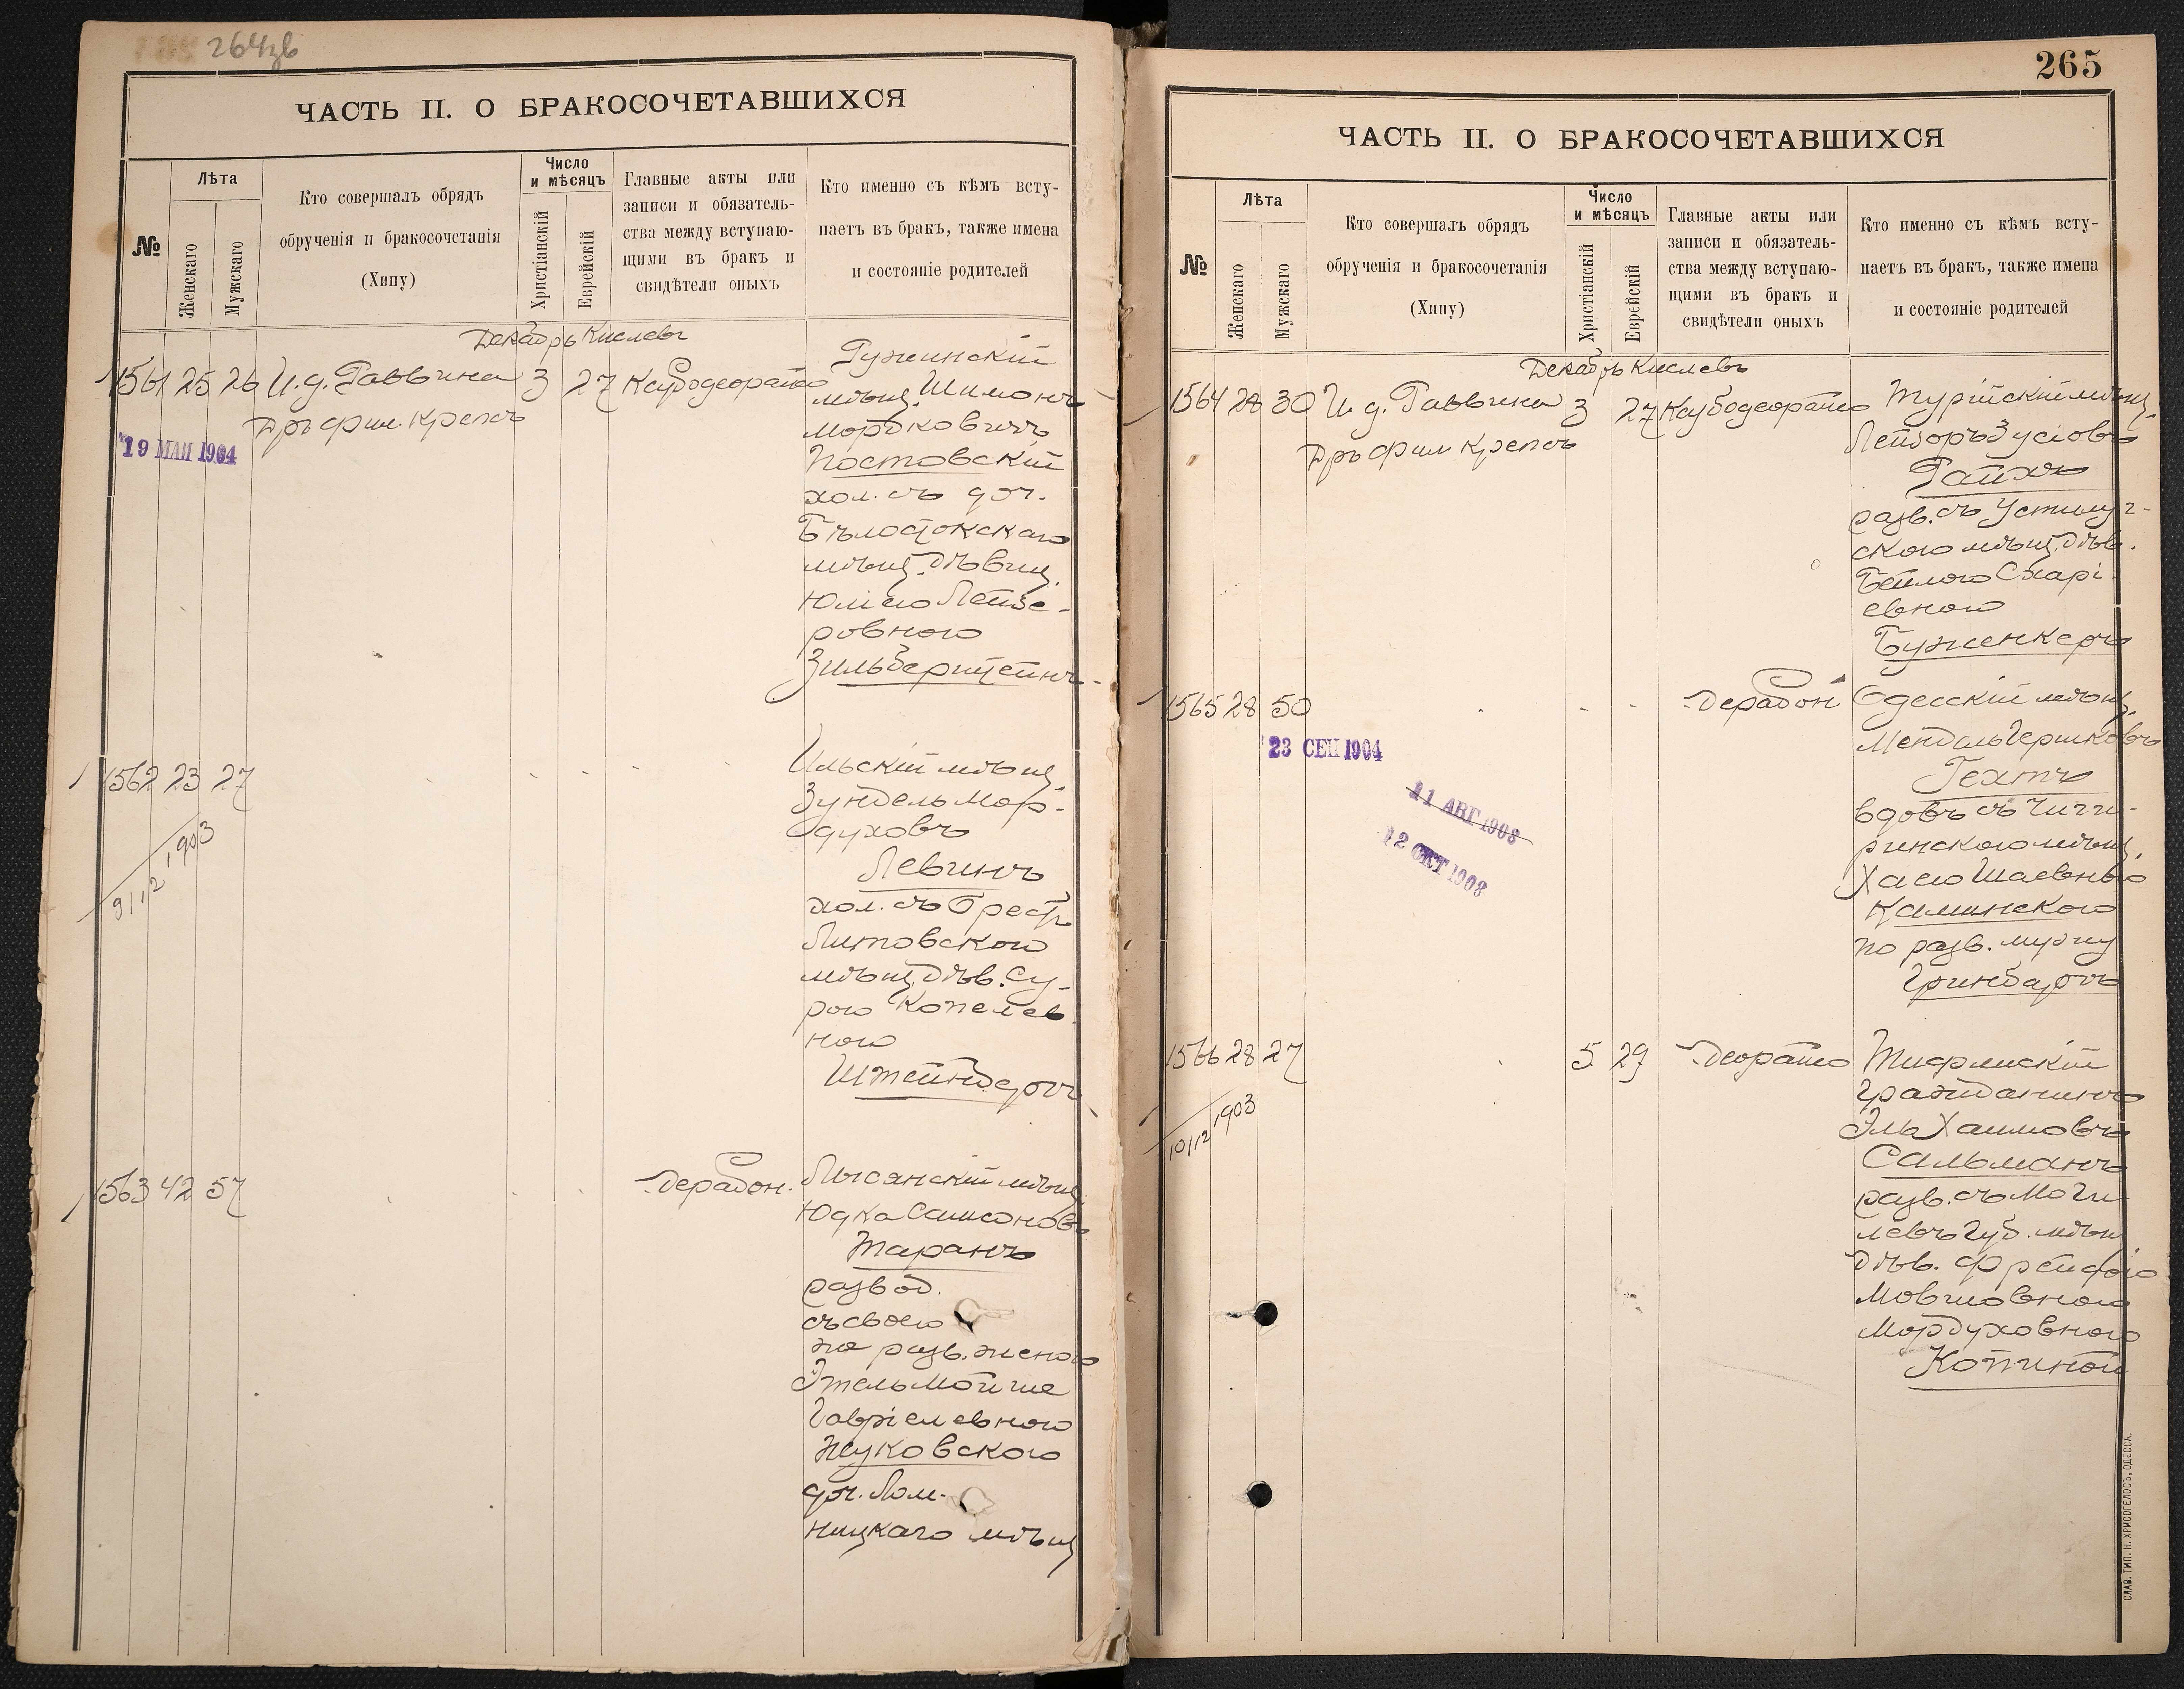 264зв
ЧАСТЬ II. О БРАКОСОЧЕТАВШИХСЯ
№
Лѣта
Женскаго
Мужскаго
Кто совершалъ обрядъ
обрученія и бракосочетанія
(Хипу)
Число
и мѣсяцъ
Христіанскій
Еврейскій
Главные акты или
записи и обязатель-
ства между вступаю-
щими въ бракъ и
свидѣтели оныхъ
Кто именно съ кѣмъ всту-
паетъ въ бракъ, также имена
и состояніе родителей
Декабрь Кислевъ
1561 25 26 И.д. Раввина 3 27
Дръ фил. Крепсъ
19 МАЙ 1904
Гужинскій
мѣщ. Шимонъ
Мордковичъ
Постовскій
хол. съ доч.
Бѣлостокскаго
мѣщ. дѣвиц.
Юліею Лейзе-
ровною
Зильберштейнъ
1562 23 27
9/12 1903
Ильскій мѣщ.
Зундель Мор-
духовъ
Левинъ
хол. съ Брестъ
Литовскою
мѣщ. дѣв. Су-
рою Копелев
ною
Штейнбергъ
1563 42 57
Дерабон.
Лысянскій мѣщ.
Юдка Самсоновъ
Таранъ
развод.
съ своею
же разв. женою
Этель Мойше
Гавріелевною
Жуковскою
доч. Лом-
ницкаго мѣщ
265
ЧАСТЬ II. О БРАКОСОЧЕТАВШИХСЯ
№
Лѣта
Женскаго
Мужскаго
Кто совершалъ обрядъ
обрученія и бракосочетанія
(Хипу)
Число
и мѣсяцъ
Христіанскій
Еврейскій
Главные акты или
записи и обязатель-
ства между вступаю-
щими въ бракъ и
свидѣтели оныхъ
Кто именно съ кѣмъ всту-
паетъ въ бракъ, также имена
и состояніе родителей
Декабрь Кислевъ
1564 28 30 И.д. Раввина 3 27
Дръ фил Крепсъ
Турійскій мѣщ.
Лейзоръ Зусіовъ
Райхъ
разв. съ Устилуг-
скою мѣщ. дѣв.
Бейлою Схарі-
евною
Буженкеръ
1565 28 50
23 СЕН 1904
11 АВГ 1908
12 ОКТ 1908
Дерабон
Одесскій мѣщ.
Мендель Гершковъ
Гехтъ
вдовъ съ Чиги-
ринскою мѣщ.
Хасею Шаевною
Каминскою
по разв. мужу
Гринбаргъ
1566 28 27 5 29 Деорайсо
10/12 1903
Тифлискій
гражданинъ
Эль Хаимовъ
Сальманъ
разв. съ Моги
левъ губ. мѣщ
дѣв. Фрейдою
Мовшовною
Мордуховною
Копиной
СЛАВ. ТИП. Н. ХРИСОГЕЛОСЪ, ОДЕССА.